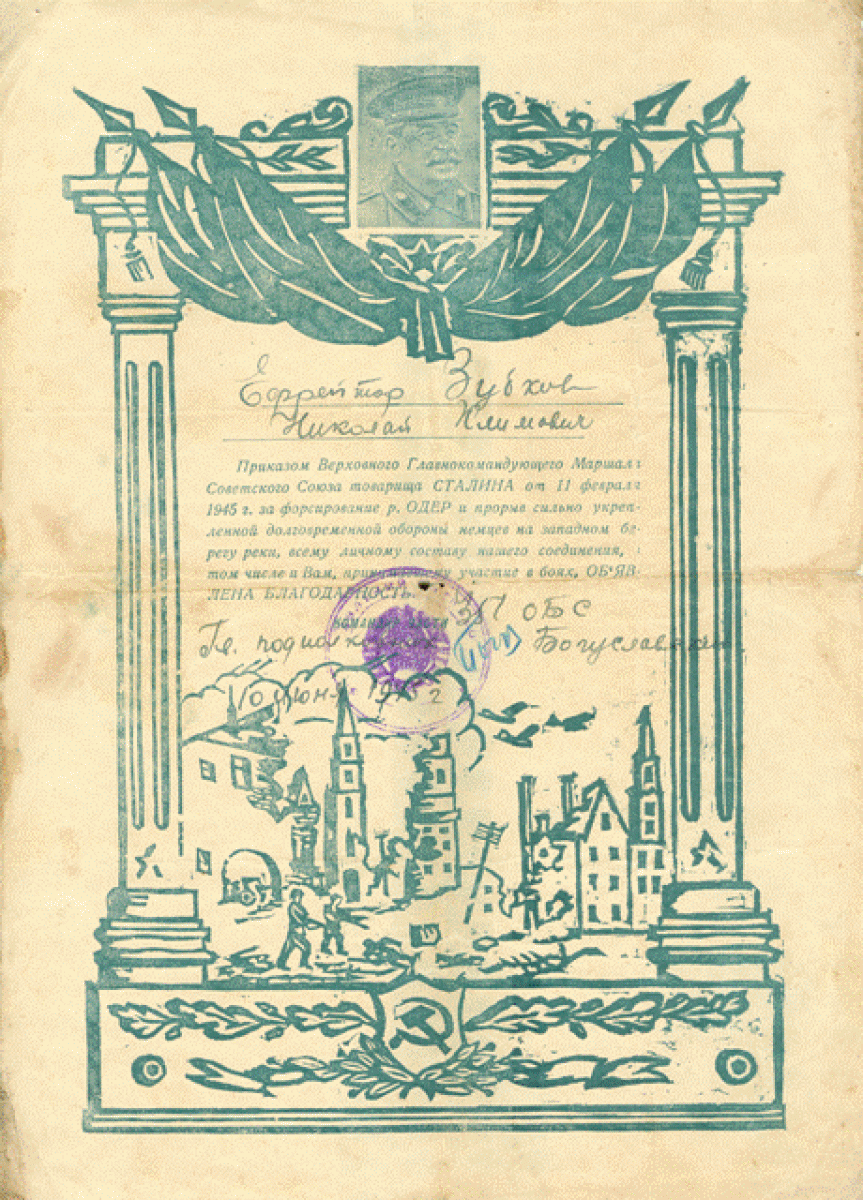 Ефрейтор Зубков
Николай Климович
Приказом Верховного Главнокомандующего Маршала
Советского Союза товарища СТАЛИНА от 11 февраля
1945 г. за форсирование р. ОДЕР и прорыв сильно укреп-
ленной долговременной обороны немцев на западном бе-
регу реки, всему личному составу нашего соединения, в
том числе и Вам, принимавшему участие в боях, ОБ'ЯВ-
ЛЕНА БЛАГОДАРНОСТЬ.
Командир части ОБС
Гв. подполковник Богуславский
10 июня 1945 г